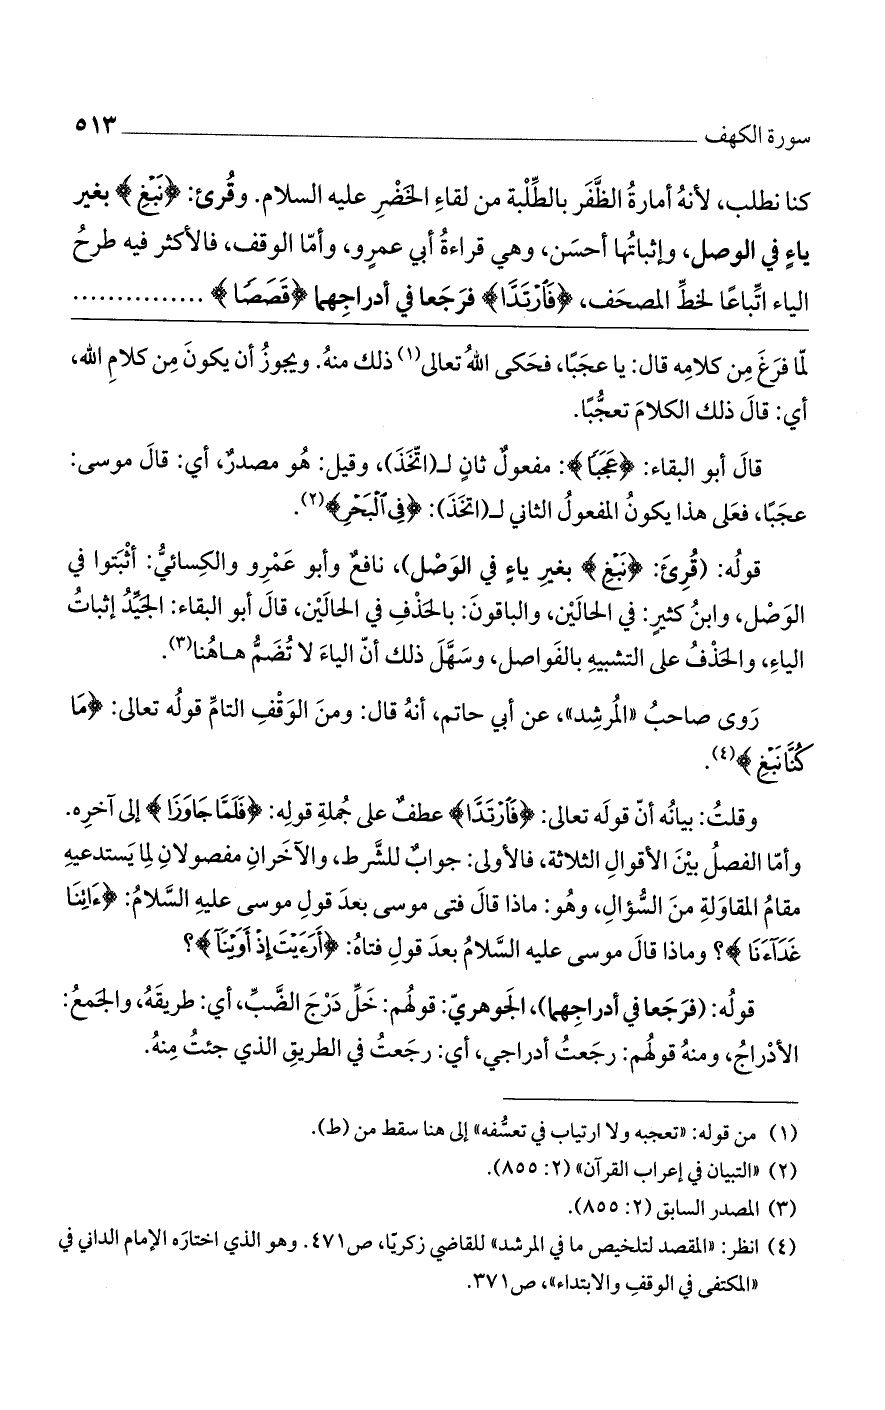 سورة الكهف ٥١٣
كنا نطلب، لأنهُ أمارةُ الظَّفَر بالطِّلْبة من لقاءِ الخَضْرِ عليه السلام. وقُرئ: ﴿نَبْغِ﴾ بغير
ياءٍ في الوصل، وإثباتُها أحسَن، وهي قراءةُ أبي عمرٍو، وأمّا الوقف، فالأكثر فيه طرحُ
الياء اتِّباعًا لخطِّ المصحَف، ﴿فَٱرْتَدَّا﴾ فرَجَعا في أدراجِهما ﴿قَصَصًا﴾ ...............
لمّا فرَغَ مِن كلامِه قال: يا عجَبًا، فحَكى اللهُ تعالى(١) ذلك منهُ. ويجوزُ أن يكونَ مِن كلامِ الله،
أي: قالَ ذلك الكلامَ تعجُّبًا.
قالَ أبو البقاء: ﴿عَجَبًا﴾: مفعولٌ ثانٍ لـ(اتَّخَذَ)، وقيل: هُو مصدرٌ، أي: قالَ موسى:
عجَبًا، فعَلى هذا يكونُ المفعولُ الثاني لـ(اتخَذَ): ﴿فِى ٱلْبَحْرِ﴾(٢).
قولُه: (قُرِئَ: ﴿نَبْغِ﴾ بغيرِ ياءٍ في الوَصْل)، نافعٌ وأبو عَمْرٍو والكِسائيُّ: أثْبَتوا في
الوَصْل، وابنُ كثيرٍ: في الحالَيْن، والباقونَ: بالحَذْفِ في الحالَيْن، قالَ أبو البقاء: الجيِّدُ إثباتُ
الياءِ، والحَذْفُ على التشبيهِ بالفَواصل، وسَهَّلَ ذلك أنّ الياءَ لا تُضَمُّ هاهُنا(٣).
رَوى صاحبُ «المُرشِد»، عن أبي حاتم، أنهُ قال: ومنَ الوَقْفِ التامِّ قولُه تعالى: ﴿مَا
كُنَّا نَبْغِ﴾(٤).
وقلتُ: بيانُه أنّ قولَه تعالى: ﴿فَٱرْتَدَّا﴾ عطفٌ على جُملةِ قولِه: ﴿فَلَمَّا جَاوَزَا﴾ إلى آخرِه.
وأمّا الفصلُ بيْنَ الأقوالِ الثلاثة، فالأولى: جوابٌ للشَّرط، والآخَرانِ مفصولانِ لِما يَستدعيهِ
مقامُ المقاوَلةِ منَ السُّؤال، وهُو: ماذا قالَ فتى موسى بعدَ قولِ موسى عليهِ السَّلامُ: ﴿ءَاتِنَا
غَدَآءَنَا﴾؟ وماذا قالَ موسى عليه السَّلامُ بعدَ قولِ فتاهُ: ﴿أَرَءَيْتَ إِذْ أَوَيْنَآ﴾؟
قولُه: (فرَجَعا في أدراجِهما)، الجَوهريّ: قولُهم: خَلِّ دَرْجَ الضَّبِّ، أي: طريقَهُ، والجَمعُ:
الأدْراجُ، ومنهُ قولُهم: رجَعتُ أدراجي، أي: رجَعتُ في الطريقِ الذي جئتُ مِنهُ.
(١) من قوله: «تعجبه ولا ارتياب في تعسُّفه» إلى هنا سقط من (ط).
(٢) «التبيان في إعراب القرآن» (٢: ٨٥٥).
(٣) المصدر السابق (٢: ٨٥٥).
(٤) انظر: «المقصد لتلخيص ما في المرشد» للقاضي زكريّا، ص٤٧١. وهو الذي اختارَه الإمام الداني في
«المكتفى في الوقفِ والابتداء»، ص٣٧١.